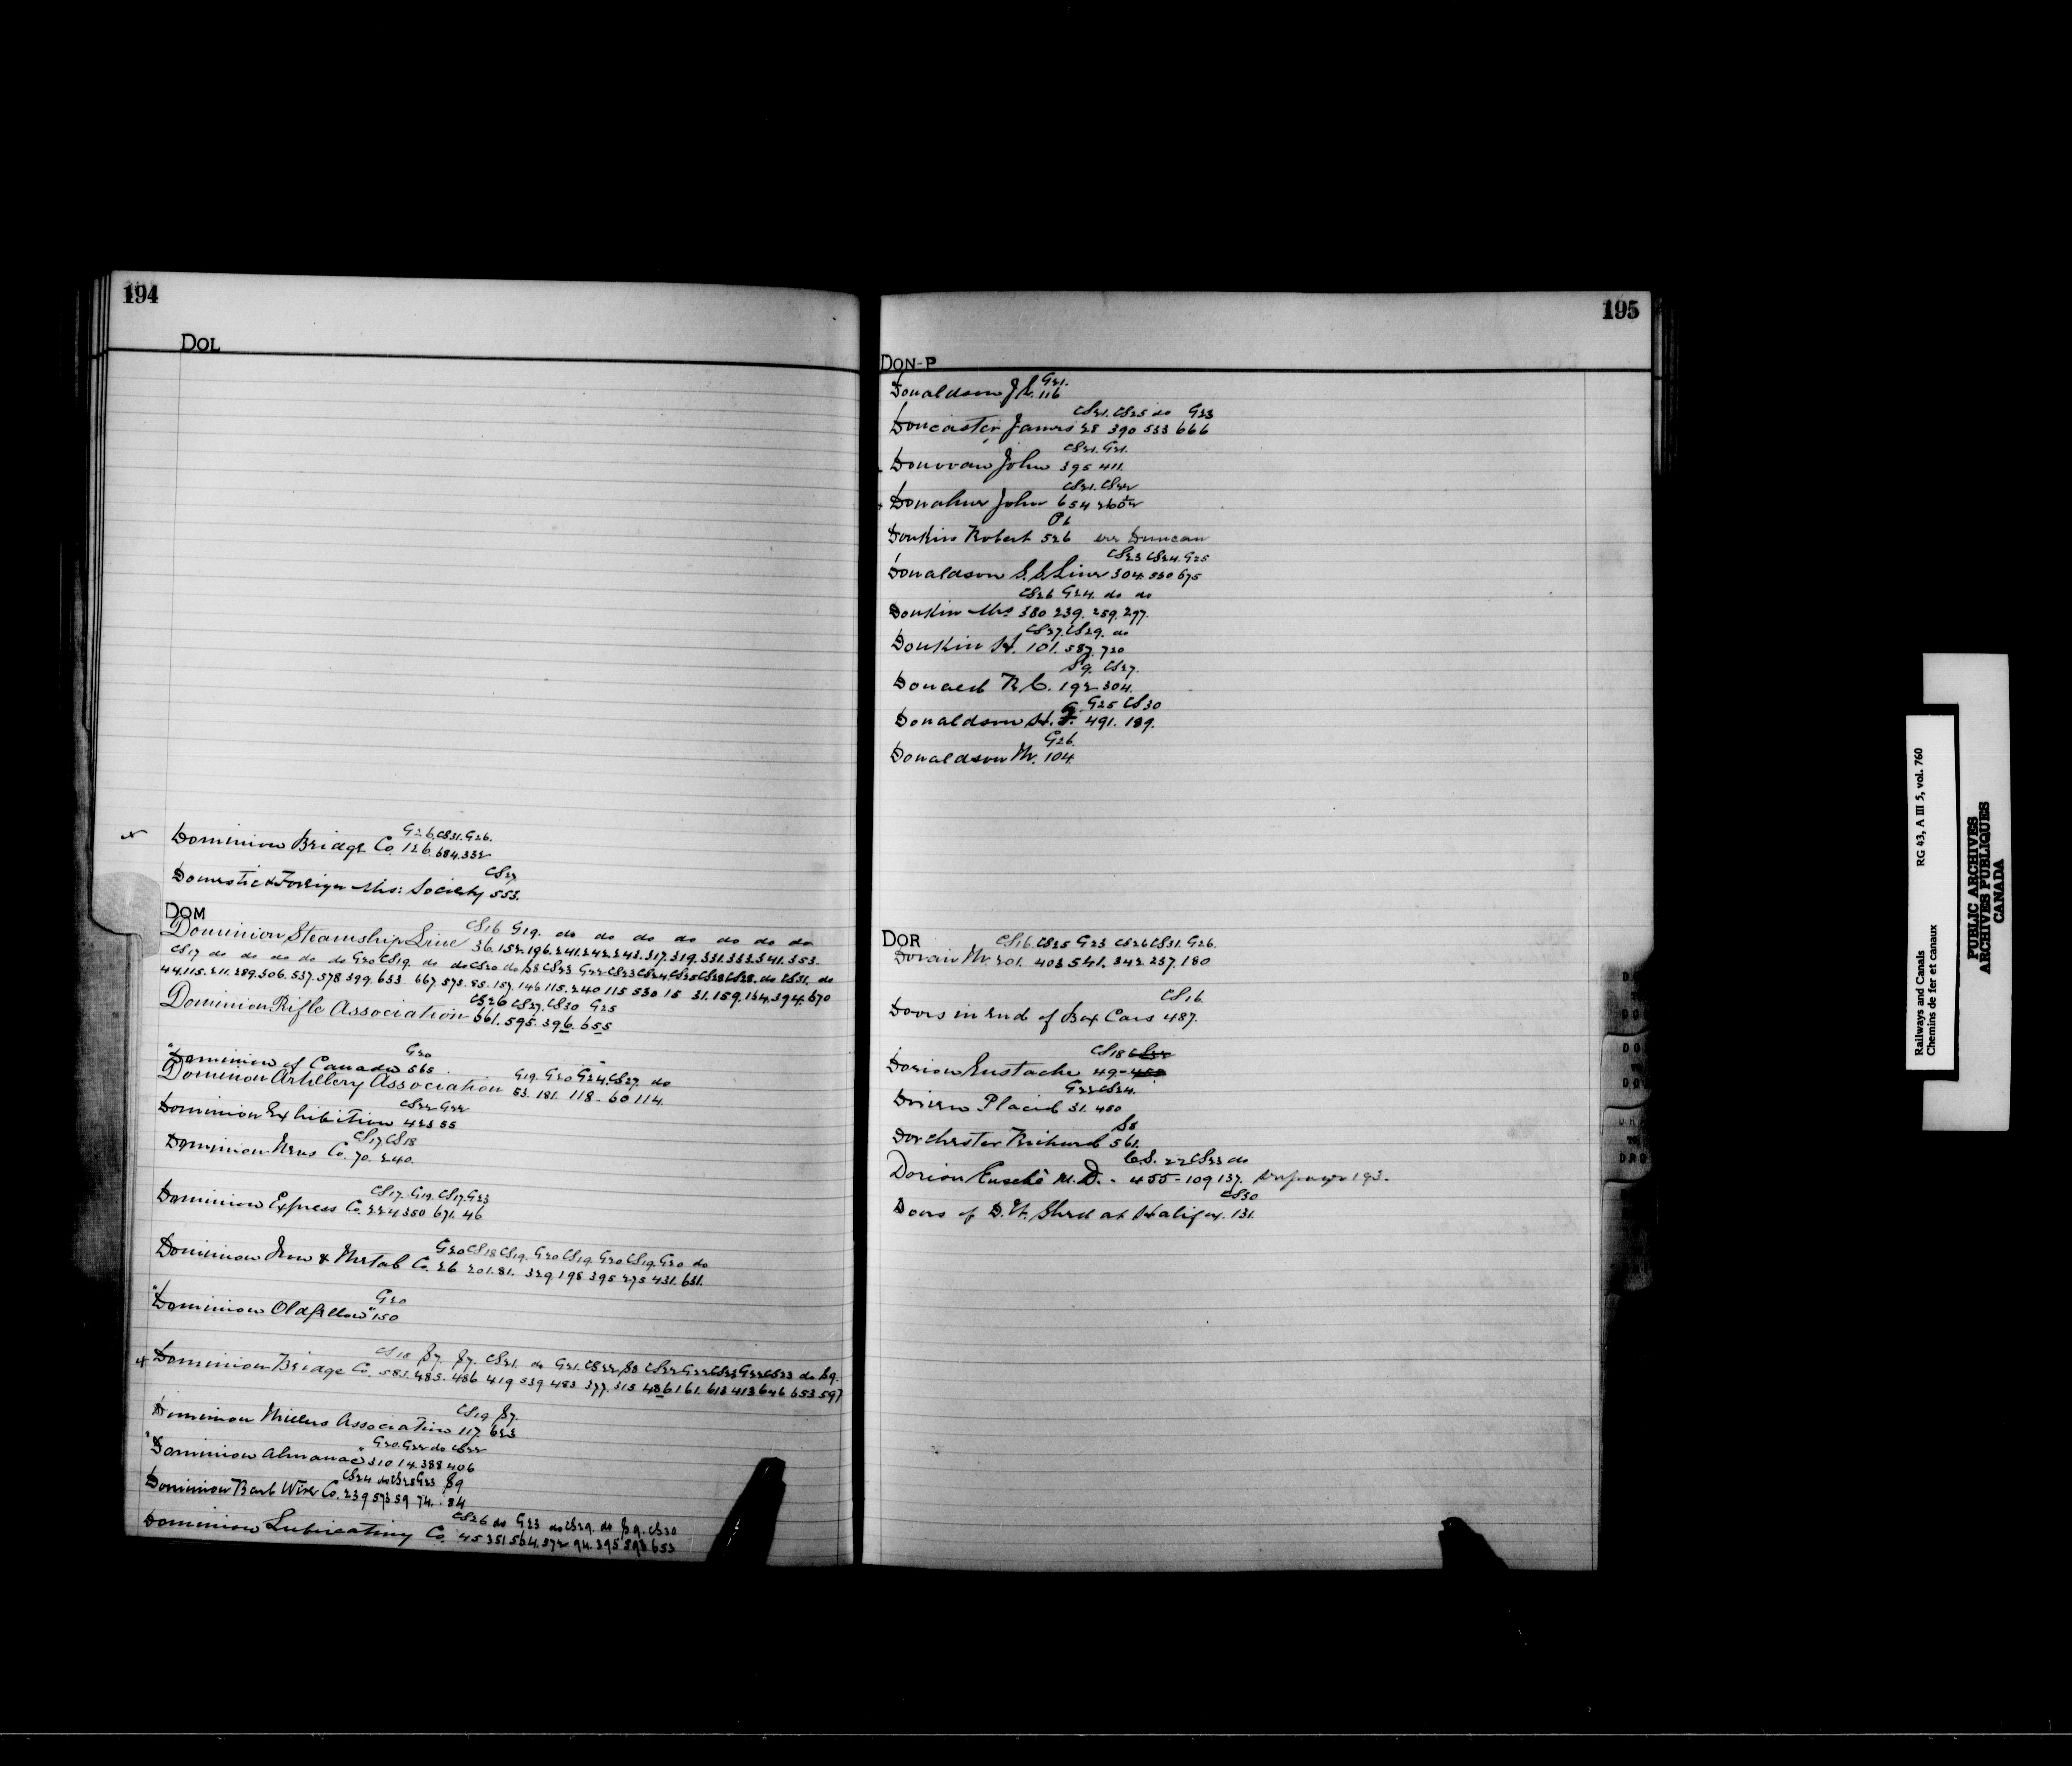 194
DOL
G26. CS31. G26.
Dominion Bridge Co. 126. 684. 332
CS27
Domestic & Foreign Mis: Society 553.
DOM
CS16 G19. do do do do do do do
Dominion Steamship Line 36. 152. 196. 241. 242. 243. 317. 319. 331. 333. 341. 353.
CS17 do do do do do G20 CS19. do do CS20 do S8 CS23 G22 CS23 CS24 CS25 CS28 CS28. do CS31. do
44. 115. 211. 289. 306. 537. 578 399. 633. 667. 575. 85. 157. 146 115. 240 115 530 15 31. 159. 164. 394. 670
CS26 CS27. CS30 G25
Dominion Rifle Association 661. 595. 396. 655
G20
"Dominion of Canada" 565
G19. G20 G24. CS27. do
Dominion Artillery Association 53. 181. 118 - 60 114.
CS22 G22
Dominion Exhibition 423 55
CS17 CS18
Dominion News Co. 70. 240.
CS17. G19. CS17. G23
Dominion Express Co. 224 350 671. 46
G20 CS18 CS19. G20 CS19. G20 CS19. G20 do
Dominion Iron & Metal Co. 26 201. 81. 329. 198 395 275 431. 631.
G20
"Dominion Oldfellow" 150
CS18 S7. S7. CS21. do G21. CS22 S8 CS22 G22 CS23 G22 CS23 do S9.
Dominion Bridge Co. 581. 485. 486 419 539 483 377. 315 486 161. 613 413 646 653 597
CS19 S7.
Dominion Millers Association 117. 623
G20. G22 do CS22
"Dominion Almanac" 310 14. 388 406
CS24 do CS25 G23 S9
Dominion Barb Wire Co. 239 573 59 74. 84
CS26 do G23 do CS29. do S9. CS30
Dominion Lubricating Co. 45 351 564. 572 94. 395 593 653
195
DON-P
G21.
Donaldson J. 116
CS21. CS25 do G23
Doncaster James 28 390 533 666
CS21. G21.
Donovan John 395 411.
CS21. CS22
Donahue John 654
P6
Donkin Robert 526 see Duncan
CS23 CS24. G25
Donaldson S.S. Line 304 530 675
CS26 G24. do do
Donkin Mrs 380 239. 259. 297.
CS27. CS29. do
Donkin H. 101. 587. 720
S9. CS27.
R. C. 192 304.
G25 CS30
Donaldson H. 491. 189.
G26.
Donaldson Mr. 104.
DOR
CS16. CS25 G23 CS26 CS31. G26.
Doran Mr. 201. 403 541. 342 237. 180
CS16.
Doors in End of Box Cars 487.
CS18 CS22
Dorion Eustache 49-455
G22 CS24.
Placid 31. 450
S8
Dorchester Richard 561.
C.S. 22 CS23 do
Dorion Eusebe M.D. - 455 - 109 137. see page 193.
CS30
Doors of D.W. Shed at Halifax. 131.
RG 43, A III 5, vol. 760
Railways and Canals
Chemins de fer et canaux
PUBLIC ARCHIVES
ARCHIVES PUBLIQUES
CANADA